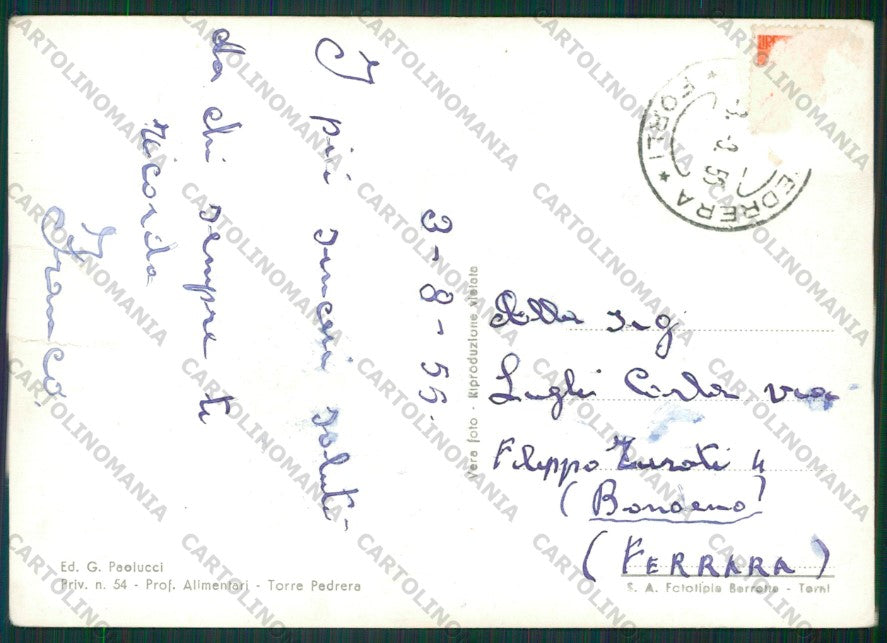 3-8-55.
I più sinceri saluti
da chi sempre ti
ricorda
Franco.
Alla Sig
Lughi Carla via
Filippo Turati 4
(Bondeno)
(FERRARA)
FORLI
EDRERA
Vera foto - Riproduzione vietata
Ed. G. Paolucci
Priv. n. 54 - Prof. Alimentari - Torre Pedrera
S. A. Fototipia Berretta - Terni
CARTOLINOMANIA